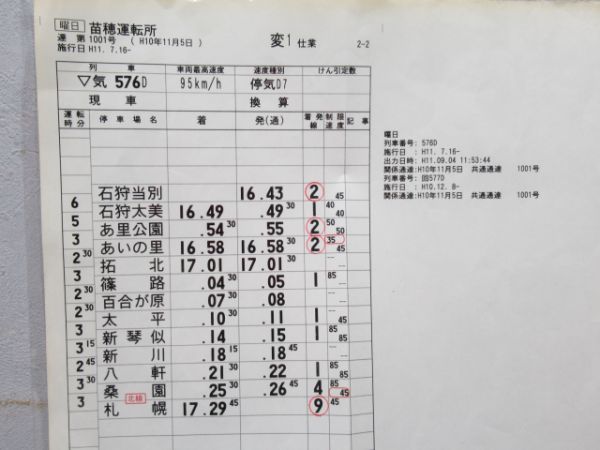 曜日 苗穂運転所
運 第 1001号 ( H10年11月5日 ) 変1 仕業 2-2
施行日 H11. 7.16-
列 車 車両最高速度 速度種別 けん引定数
▽気 576D 95km/h 停気D7
現 車 換 算
運転時分 停車場名 着 発(通) 着発線 制限速度 記事
石狩当別 16.43 2 45
6
石狩太美 16.49 .49 30 1 40 40
5
あ里公園 .54 30 .55 2 50 50
3
あいの里 16.58 30 16.58 30 2 35 45
2 30
拓北 17.01 17.01 30
3
篠路 .04 30 .05 1 85
2 30
百合が原 .07 30 .08
2
太平 .10 30 .11 1 45
3
新琴似 .14 .15 1 85 85
3 15
新川 .18 15 .18 45
2 45
八軒 .21 30 .22 1 85
3 30
桑園 北線 .25 30 .26 45 4 85 45
3
札幌 17.29 45 9 45
曜日
列車番号 : 576D
施行日 : H11. 7.16-
出力日時 : H11.09.04 11:53:44
関係通達:H10年11月5日 共通通達 1001号
列車番号: 回577D
施行日 : H10.12. 8-
関係通達:H10年11月5日 共通通達 1001号